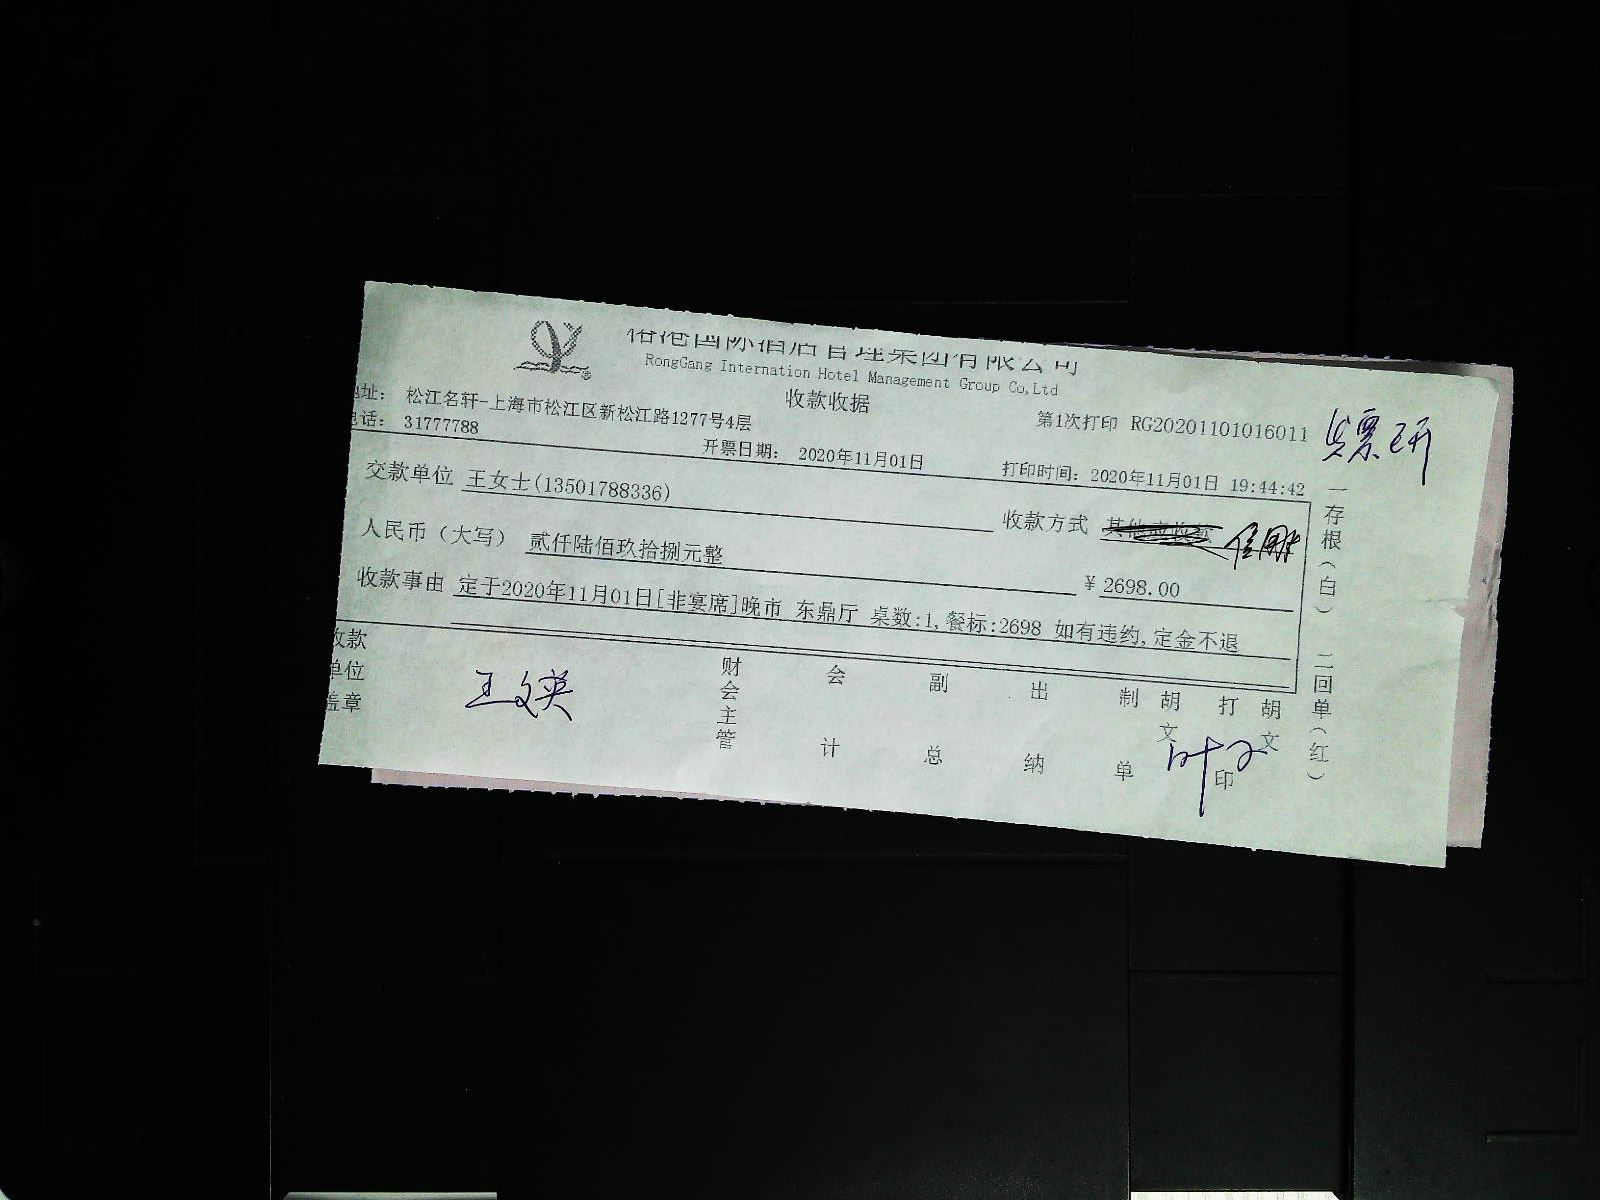 国际酒店管理集团有限公司
RongGang Internation Hotel Management Group Co,Ltd
收款收据
地址： 松江名轩-上海市松江区新松江路1277号4层
第1次打印 RG20201101016011
电话： 31777788
开票日期： 2020年11月01日
打印时间：2020年11月01日 19:44:42
交款单位 王女士(13501788336)
收款方式
人民币（大写） 贰仟陆佰玖拾捌元整
￥2698.00
收款事由 定于2020年11月01日[非宴席]晚市 东鼎厅 桌数:1,餐标:2698 如有违约,定金不退
收款单位盖章
王文英
财会主管
会计
副总
出纳
制单
胡文
打印
胡文
一存根（白）
二回单（红）